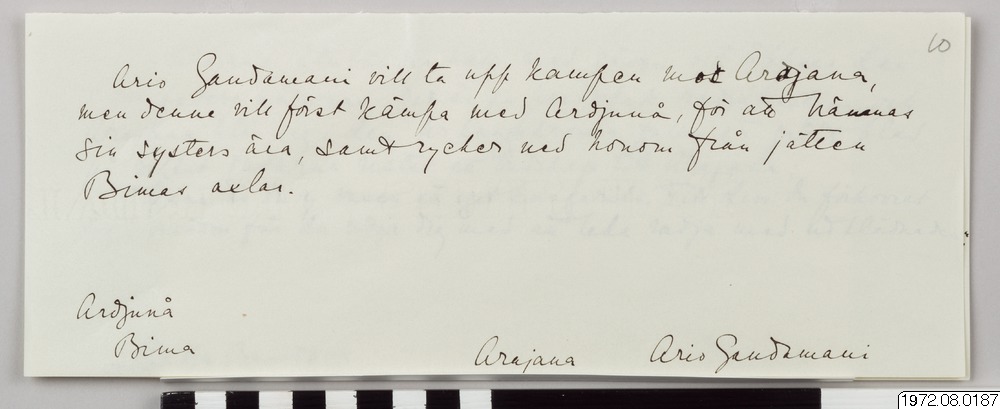 10
Ario Gandamani vill ta upp kampen mot Arajana,
men denne vill först kämpa med Ardjunå, för att hämnas
sin systers ära, samt rycker ned honom från jätten
Bimas axlar.
Ardjunå
Bima
Arajana
Ario Gandamani
1972.08.0187